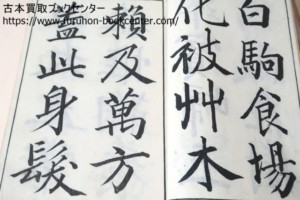 古本買取ブックセンター
https://www.furuhon-bookcenter.com/
白駒食場
化被艸木
賴及萬方
蓋此身髮